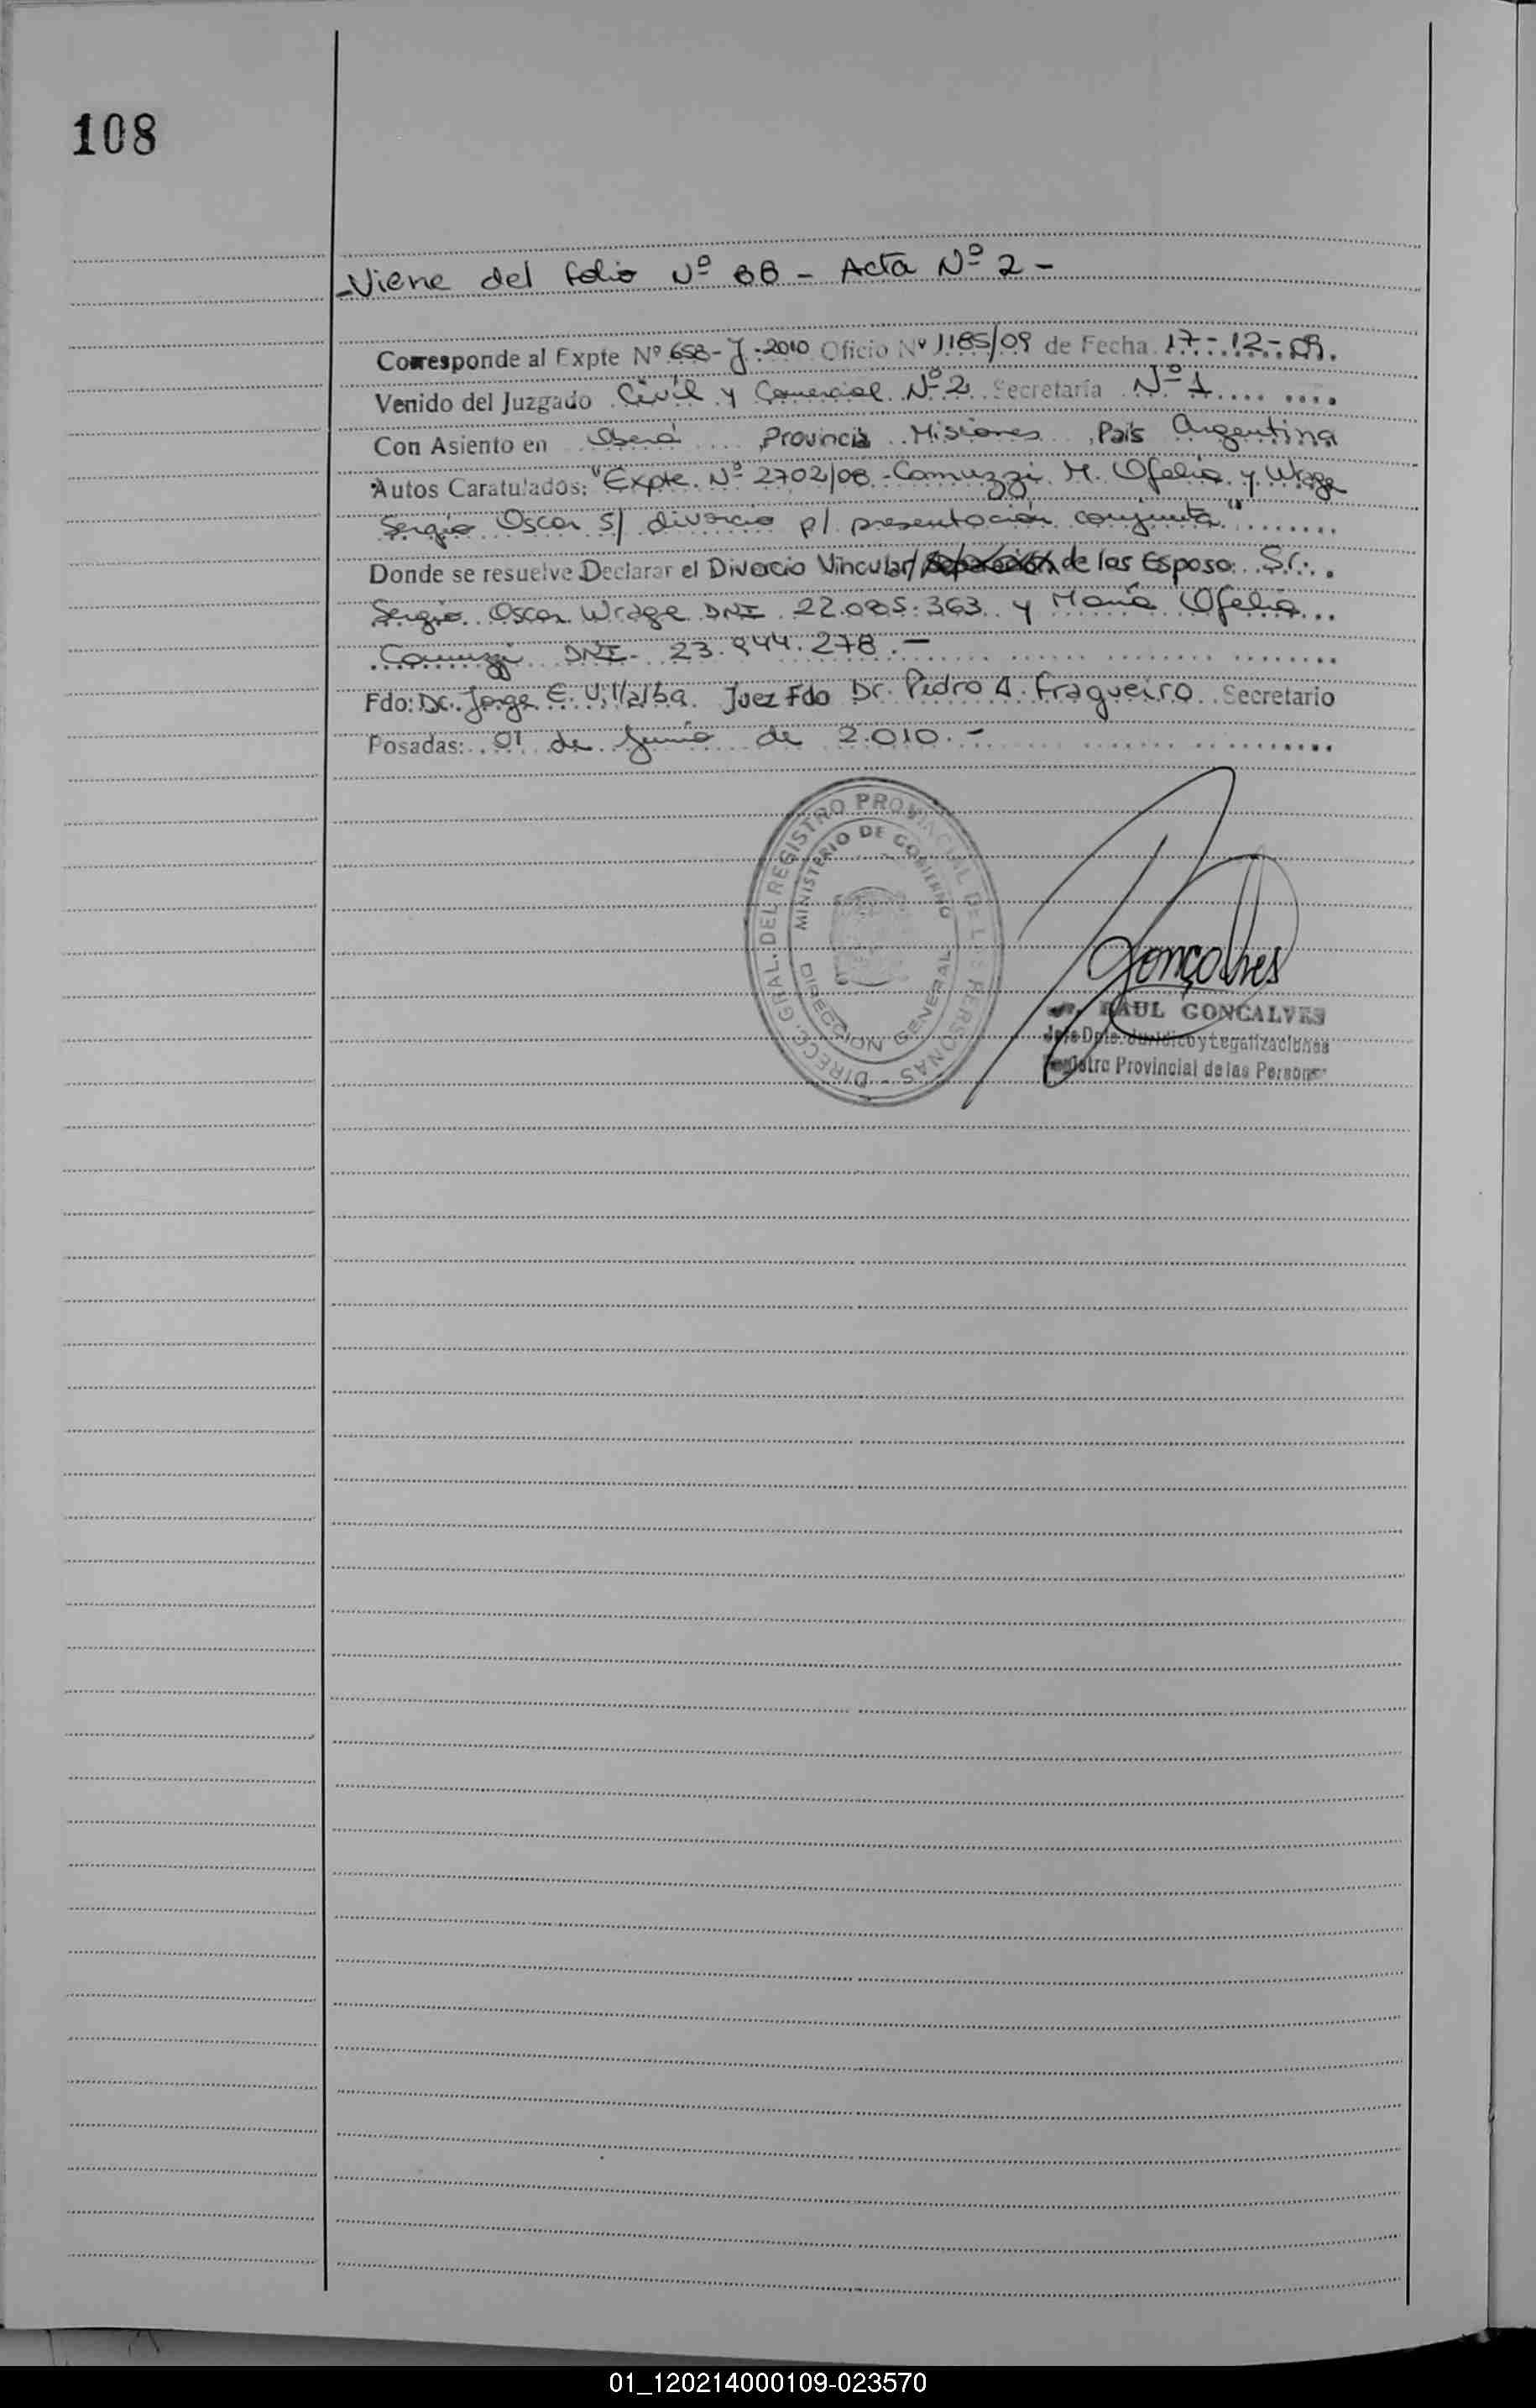 108
-Viene del folio Nº 88 - Acta Nº 2 -
Corresponde al Expte Nº 658-J-2010 Oficio Nº 1185/09 de Fecha 17-12-09.
Venido del Juzgado Civil y Comercial Nº 2 Secretaría Nº 1
Con Asiento en Oberá Provincia Misiones País Argentina
Autos Caratulados: "Expte. Nº 2702/08 - Comuzzi M. Ofelia y Wrage
Sergio Oscar s/ divorcio p/ presentación conjunta"
Donde se resuelve Declarar el Divorcio Vincular/ de los Esposo: Sr.
Sergio Oscar Wrage DNI 22.085.363 y María Ofelia
Comuzzi DNI 23.944.278.-
Fdo: Dr. Jorge E. Villalba Juez Fdo Dr. Pedro A. Fragueiro Secretario
Posadas: 01 de Junio de 2.010.-
DIRECC. GRAL. DEL REGISTRO PROVINCIAL DE LAS PERSONAS -
MINISTERIO DE GOBIERNO
DIRECCION GENERAL
Gonçalves
RAUL GONCALVES
Jefe Dpto. Jurídico y Legalizaciones
Registro Provincial de las Personas
01_120214000109-023570